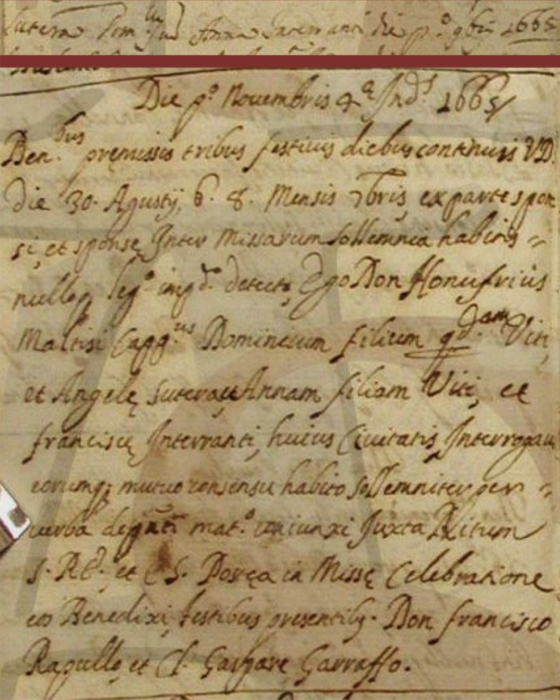 Sutera Anna Interranti die p.º 9bris 1665
Die p.º Novembris 4.ª Ind.s 1665/
Ben.bus premissis tribus festivis diebus continuis VD
die 30. Agusty, 6. 8. Mensis 7bris ex parte spon
si, et sponse Inter Missarum sollemnia habitis
nulloq leg.º imp.º detecto Ego Don Honufrius
Maltisi Capp.nus Dominicum filium q.dam Viti,
et Angele Sutera et Annam filiam Viti, et
francisce Interranti, huius Civitatis, Interrogavi
eorumq; mutuo consensu habito sollemniter per
verba de p̃nti mat.º coniunxi Juxta Ritum
S. R.E. et in Misse Celebratione
eos Benedixi, testibus presentib.s Don francisco
Ragullo, et Cl. Gaspare Garraffo.